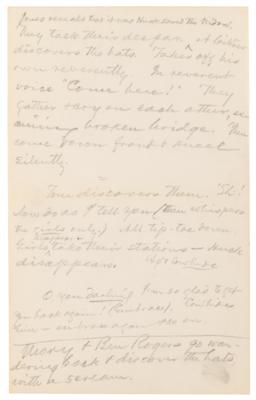 Jones reveals that it was Huck saved the Widow.
They talk their despair. At
discovers the hats. Takes off his
own reverently. In reverent
voice "Come here!" They
gather & gaze on each other, ex-
amining broken bridge. Then
come down front & kneel
silently.
Tom discovers them. "Sh!
do as I tell you (then whispers
to girls only.) All tip-toe down.
Girls take their stations — Huck
disappears.
O, you darling I'm so glad to get
you back again! (Embrace).
him — embrace again & so on.
Mary & Ben Rogers go wan-
dering back & discover the hats
with a scream.